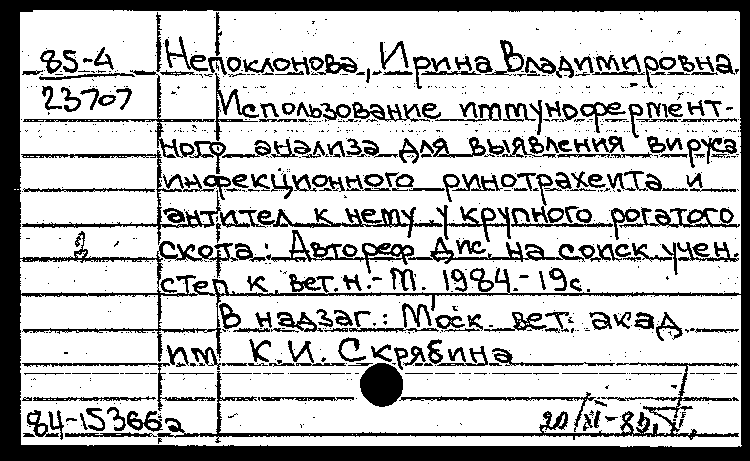 85-4 Непоклонова, Ирина Владимировна.
23707 Использование иммунофермент-
ного анализа для выявления вируса
инфекционного ринотрахеита и
антител к нему у крупного рогатого
скота: Автореф Дис. на соиск. учен.
степ. к. вет. н. - М. 1984. - 19с.
В надзаг.: Моск. вет. акад
им К. И. Скрябина
84-15366а 20/XI-85.